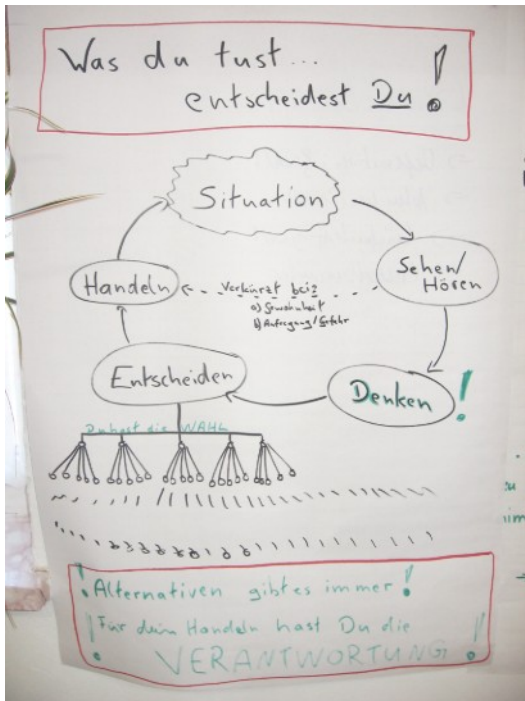 Was du tust...
entscheidest Du!
Situation
Sehen/
Hören
Handeln
verkürzt bei:
a) Gewohnheit
b) Aufregung/Gefahr
Entscheiden
Denken!
Du hast die WAHL
! Alternativen gibt es immer!
! Für dein Handeln hast Du die !
VERANTWORTUNG